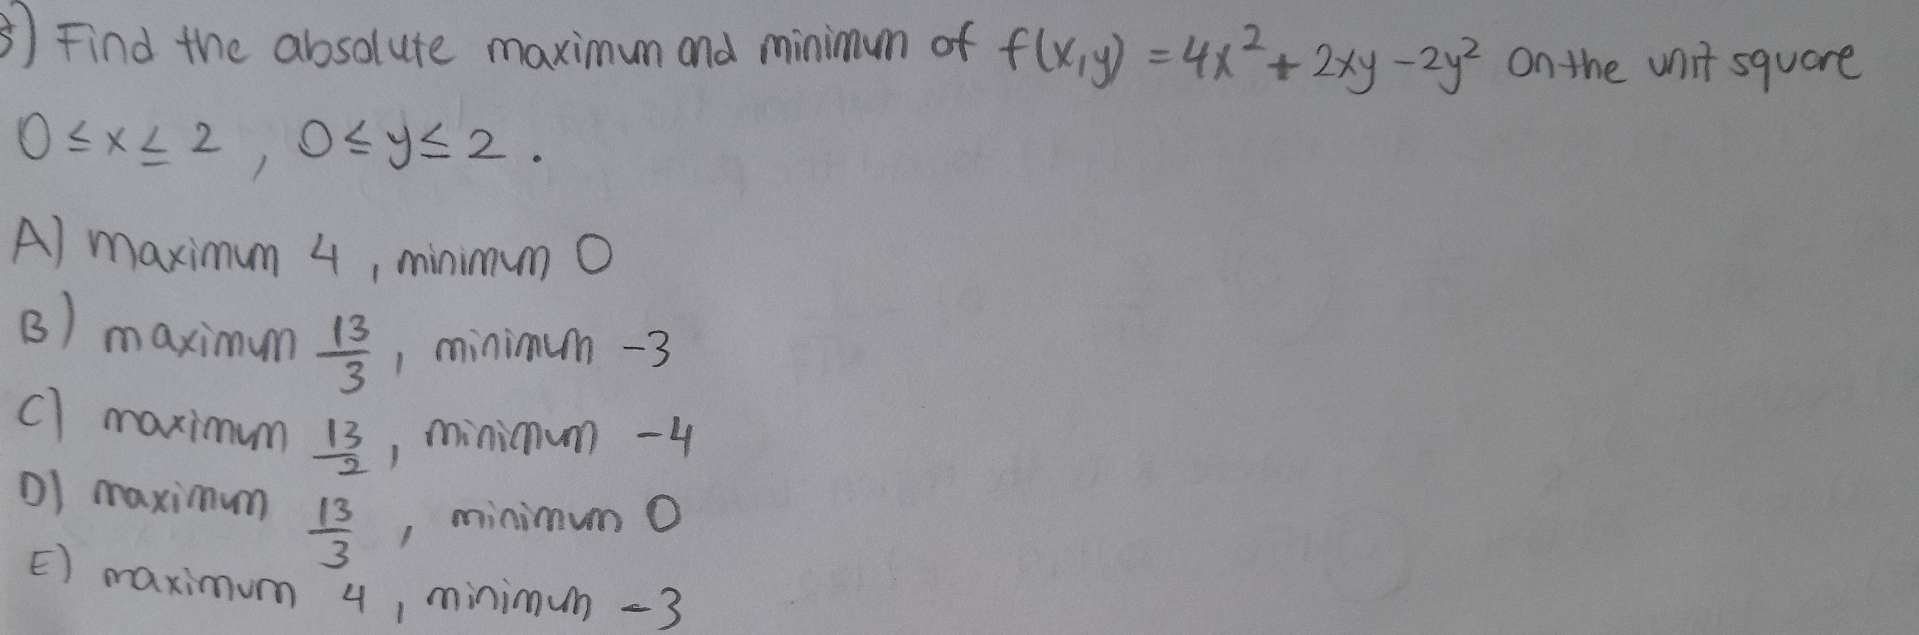 3) Find the absolute maximum and minimum of f(x,y) = 4x² + 2xy - 2y² on the unit square
0 ≤ x ≤ 2, 0 ≤ y ≤ 2.
A) maximum 4, minimum 0
B) maximum 13/3, minimum -3
C) maximum 13/2, minimum -4
D) maximum 13/3, minimum 0
E) maximum 4, minimum -3